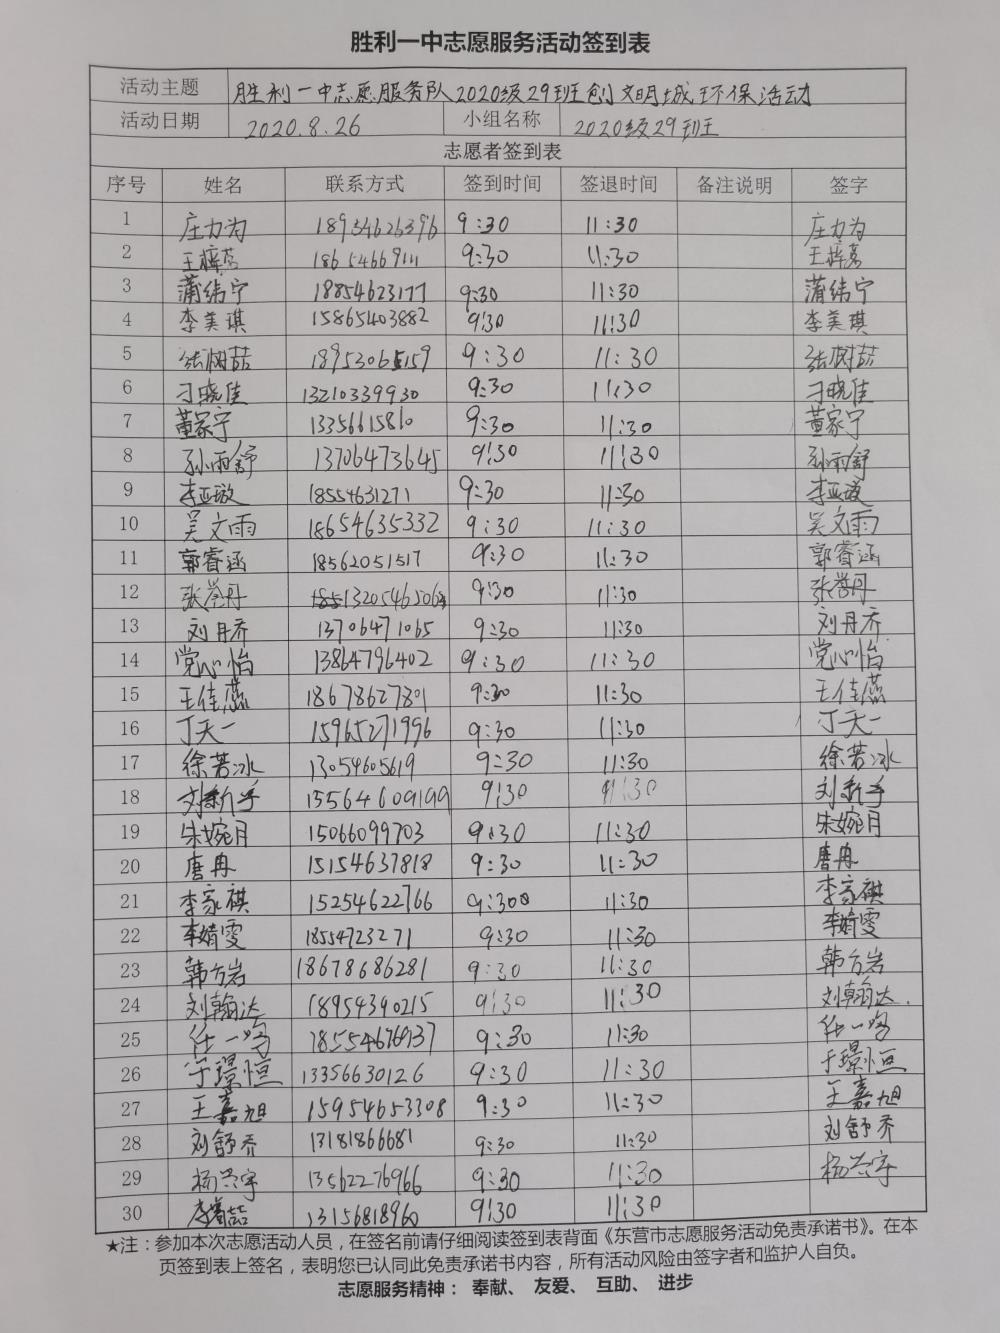 胜利一中志愿服务活动签到表
活动主题 胜利一中志愿服务队2020级29班创文明城环保活动
活动日期 2020.8.26 小组名称 2020级29班
志愿者签到表
序号 姓名 联系方式 签到时间 签退时间 备注说明 签字
1 庄力为 18954626396 9:30 11:30 庄力为
2 王梓茗 18654669111 9:30 11:30 王梓茗
3 蒲纬宁 18854623177 9:30 11:30 蒲纬宁
4 李美琪 15865403882 9:30 11:30 李美琪
5 张树喆 18953065159 9:30 11:30 张树喆
6 刁晓佳 13210339930 9:30 11:30 刁晓佳
7 董家宁 13356615810 9:30 11:30 董家宁
8 孙雨舒 13706473645 9:30 11:30 孙雨舒
9 李亚璇 18554631271 9:30 11:30 李亚璇
10 吴文雨 18654635332 9:30 11:30 吴文雨
11 郭睿涵 18562051517 9:30 11:30 郭睿涵
12 张誉丹 9:30 11:30 张誉丹
13 刘丹乔 13706471065 9:30 11:30 刘丹乔
14 党心怡 13864796402 9:30 11:30 党心怡
15 王佳燕 18678627801 9:30 11:30 王佳燕
16 丁天一 15965271996 9:30 11:30 丁天一
17 徐若冰 13054605619 9:30 11:30 徐若冰
18 刘新宇 15564609199 9:30 11:30 刘新宇
19 朱婉月 15066099703 9:30 11:30 朱婉月
20 唐冉 15154637818 9:30 11:30 唐冉
21 李家祺 15254622766 9:300 11:30 李家祺
22 李婧雯 18554723271 9:30 11:30 李婧雯
23 韩方岩 18678686281 9:30 11:30 韩方岩
24 刘翰达 18954390215 9:30 11:30 刘翰达.
25 任一鸣 18554676937 9:30 11:30 任一鸣
26 于璟恒 13356630126 9:30 11:30 于璟恒
27 王嘉旭 15954653308 9:30 11:30 王嘉旭
28 刘舒乔 13181866681 9:30 11:30 刘舒乔
29 杨兴宇 13562276966 9:30 11:30 杨兴宇
30 13156818960 9:30 11:30
★注：参加本次志愿活动人员，在签名前请仔细阅读签到表背面《东营市志愿服务活动免责承诺书》。在本
页签到表上签名，表明您已认同此免责承诺书内容，所有活动风险由签字者和监护人自负。
志愿服务精神： 奉献、 友爱、 互助、 进步